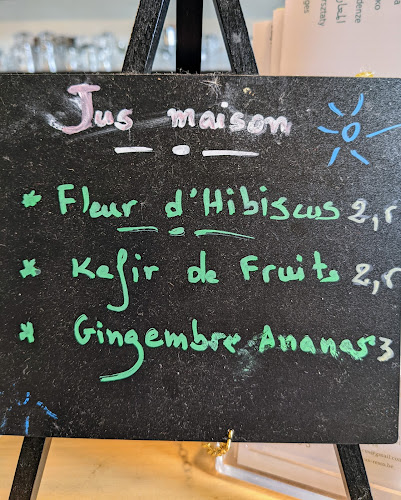 Jus maison
* Fleur d'Hibiscus 2,
* Kefir de Fruits 2,
* Gingembre Ananas 3